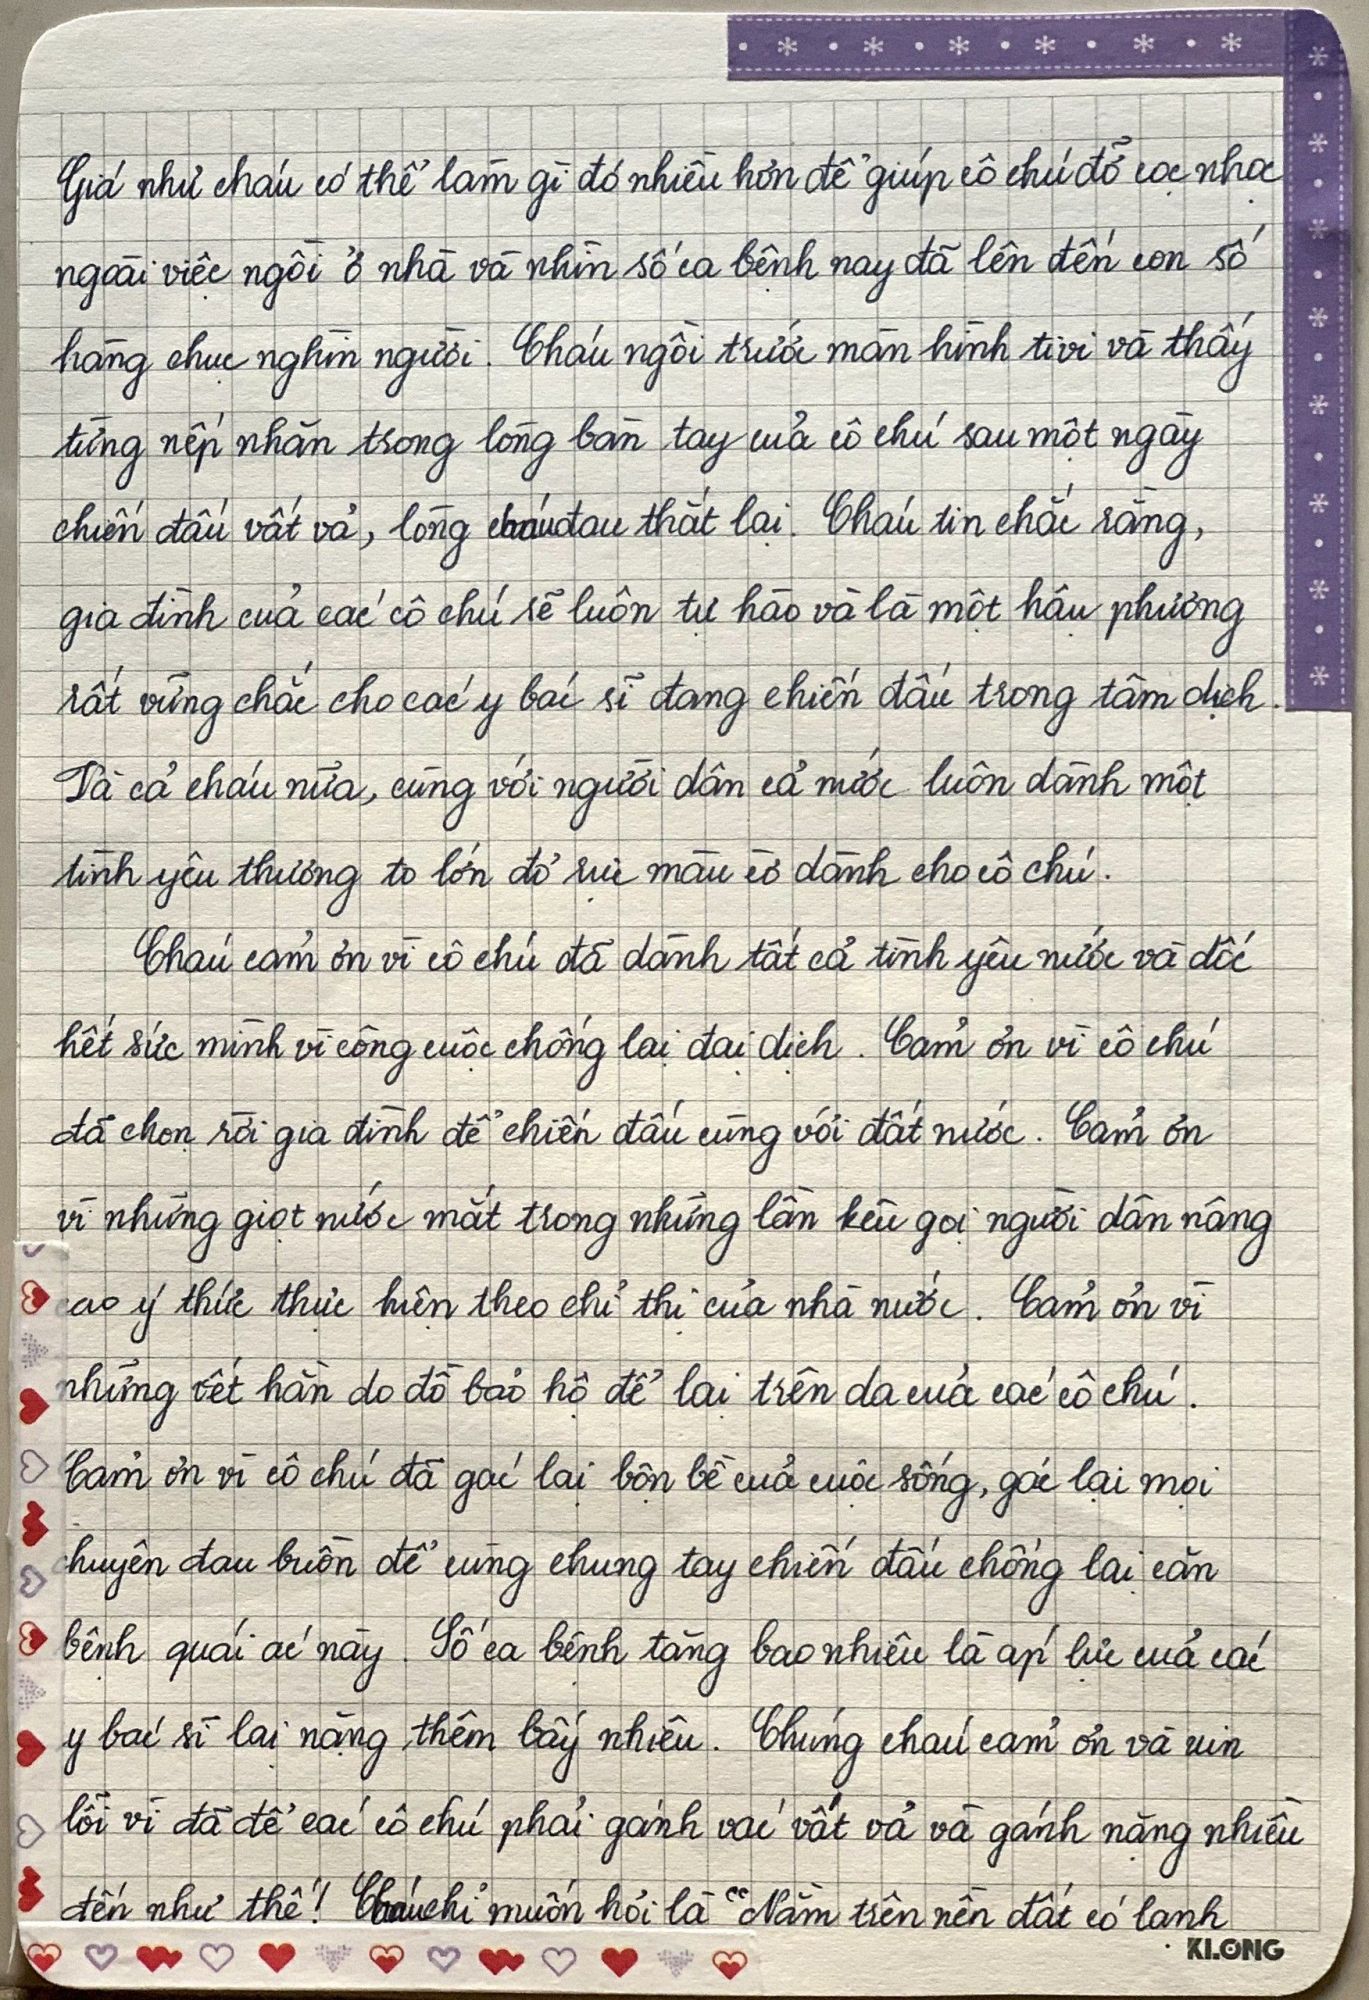 Giá như cháu có thể làm gì đó nhiều hơn để giúp cô chú đỡ cọc nhọc
ngoài việc ngồi ở nhà và nhìn số ca bệnh nay đã lên đến con số
hàng chục nghìn người. Cháu ngồi trước màn hình tivi và thấy
từng nếp nhăn trong lòng bàn tay của cô chú sau một ngày
chiến đấu vất vả, lòng cháu đau thắt lại. Cháu tin chắc rằng,
gia đình của các cô chú sẽ luôn tự hào và là một hậu phương
rất vững chắc cho các y bác sĩ đang chiến đấu trong tâm dịch.
Và cả cháu nữa, cùng với người dân cả nước luôn dành một
tình yêu thương to lớn đỏ rực màu cờ dành cho cô chú.
Cháu cảm ơn vì cô chú đã dành tất cả tình yêu nước và dốc
hết sức mình vì công cuộc chống lại đại dịch. Cảm ơn vì cô chú
đã chọn rời gia đình để chiến đấu cùng với đất nước. Cảm ơn
vì những giọt nước mắt trong những lần kêu gọi người dân nâng
cao ý thức thực hiện theo chỉ thị của nhà nước. Cảm ơn vì
những vết hằn do đồ bảo hộ để lại trên da của các cô chú.
Cảm ơn vì cô chú đã gác lại bộn bề của cuộc sống, gác lại mọi
chuyện đau buồn để cùng chung tay chiến đấu chống lại căn
bệnh quái ác này. Số ca bệnh tăng bao nhiêu là áp lực của các
y bác sĩ lại nặng thêm bấy nhiêu. Chúng cháu cảm ơn và xin
lỗi vì đã để các cô chú phải gánh vác vất vả và gánh nặng nhiều
đến như thế! Cháu chỉ muốn hỏi là "Nằm trên nền đất có lạnh
KLONG